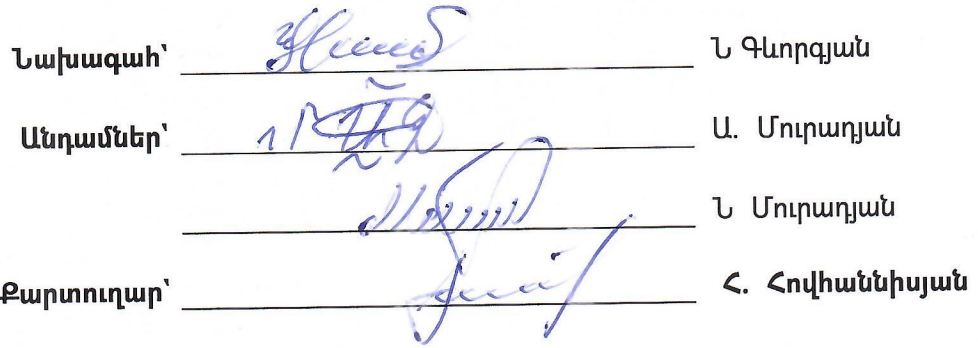 Նախագահ՝ Ն Գևորգյան
Անդամներ՝ Ա. Մուրադյան
Ն Մուրադյան
Քարտուղար՝ Հ. Հովհաննիսյան